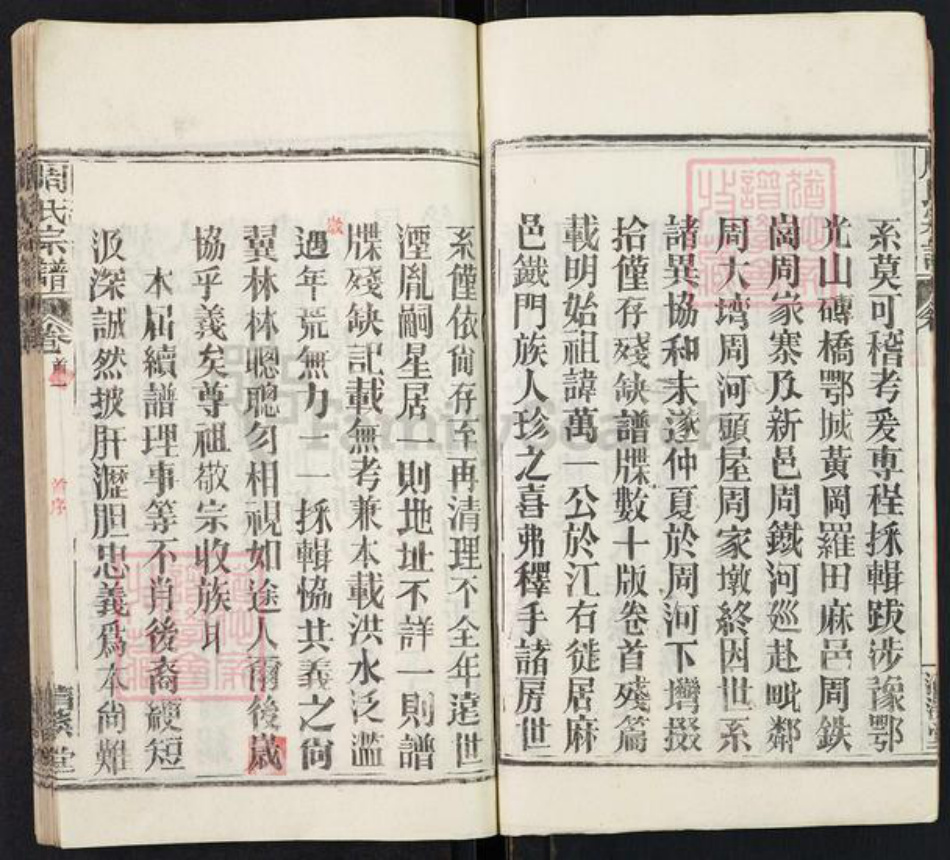 系莫可稽考爰専程採輯跋涉豫鄂
光山磚橋鄂城黃岡羅田麻邑周鉄
崗周家寨及新邑周鐵河廵赴毗鄰
周大塆周河頭屋周家墩終因世系
諸異協和未遂仲夏於周河下塆掇
拾僅存殘缺譜牒數十版卷首殘篇
載明始祖諱萬一公於江右徙居麻
邑鐵門族人珍之喜弗釋手諸房世
系僅依尙存至再清理不全年遠世
湮胤嗣星居一則地址不詳一則譜
牒殘缺記載無考兼本載洪水泛濫
歲
遇年荒無力一一採輯恊共義之尙
冀林林聰聰勿相視如途人爾後歲
協乎義矣尊祖敬宗收族耳
本屆續譜理事等不肖後裔綆短
汲深誠然披肝瀝胆忠義爲本尙難
周氏宗譜
卷
首一
首序
堂